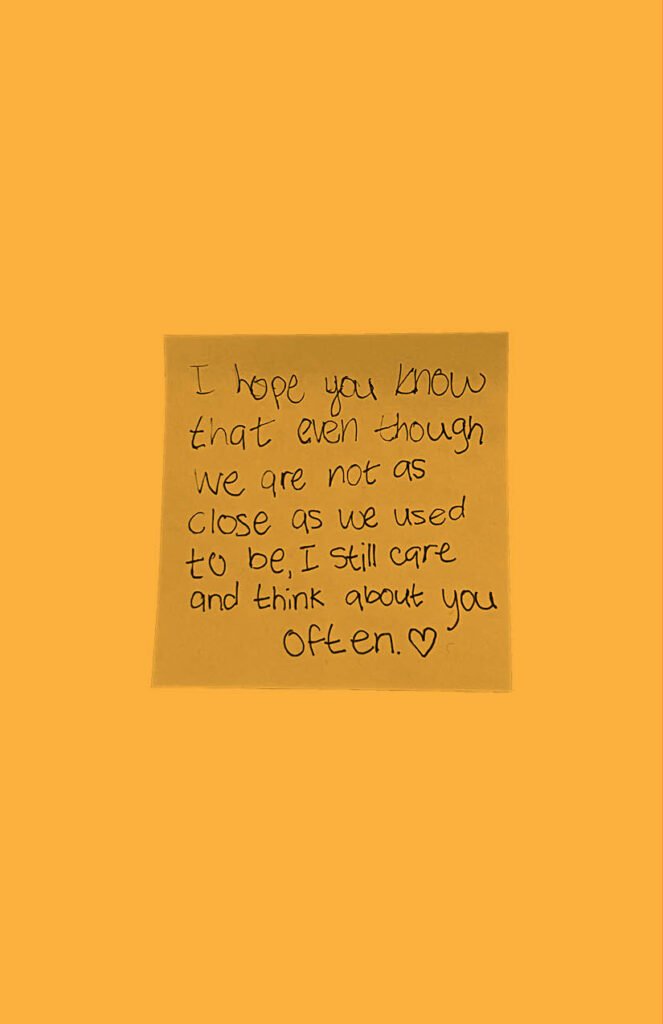 I hope you know
that even though
we are not as
close as we used
to be, I still care
and think about you
often.♡